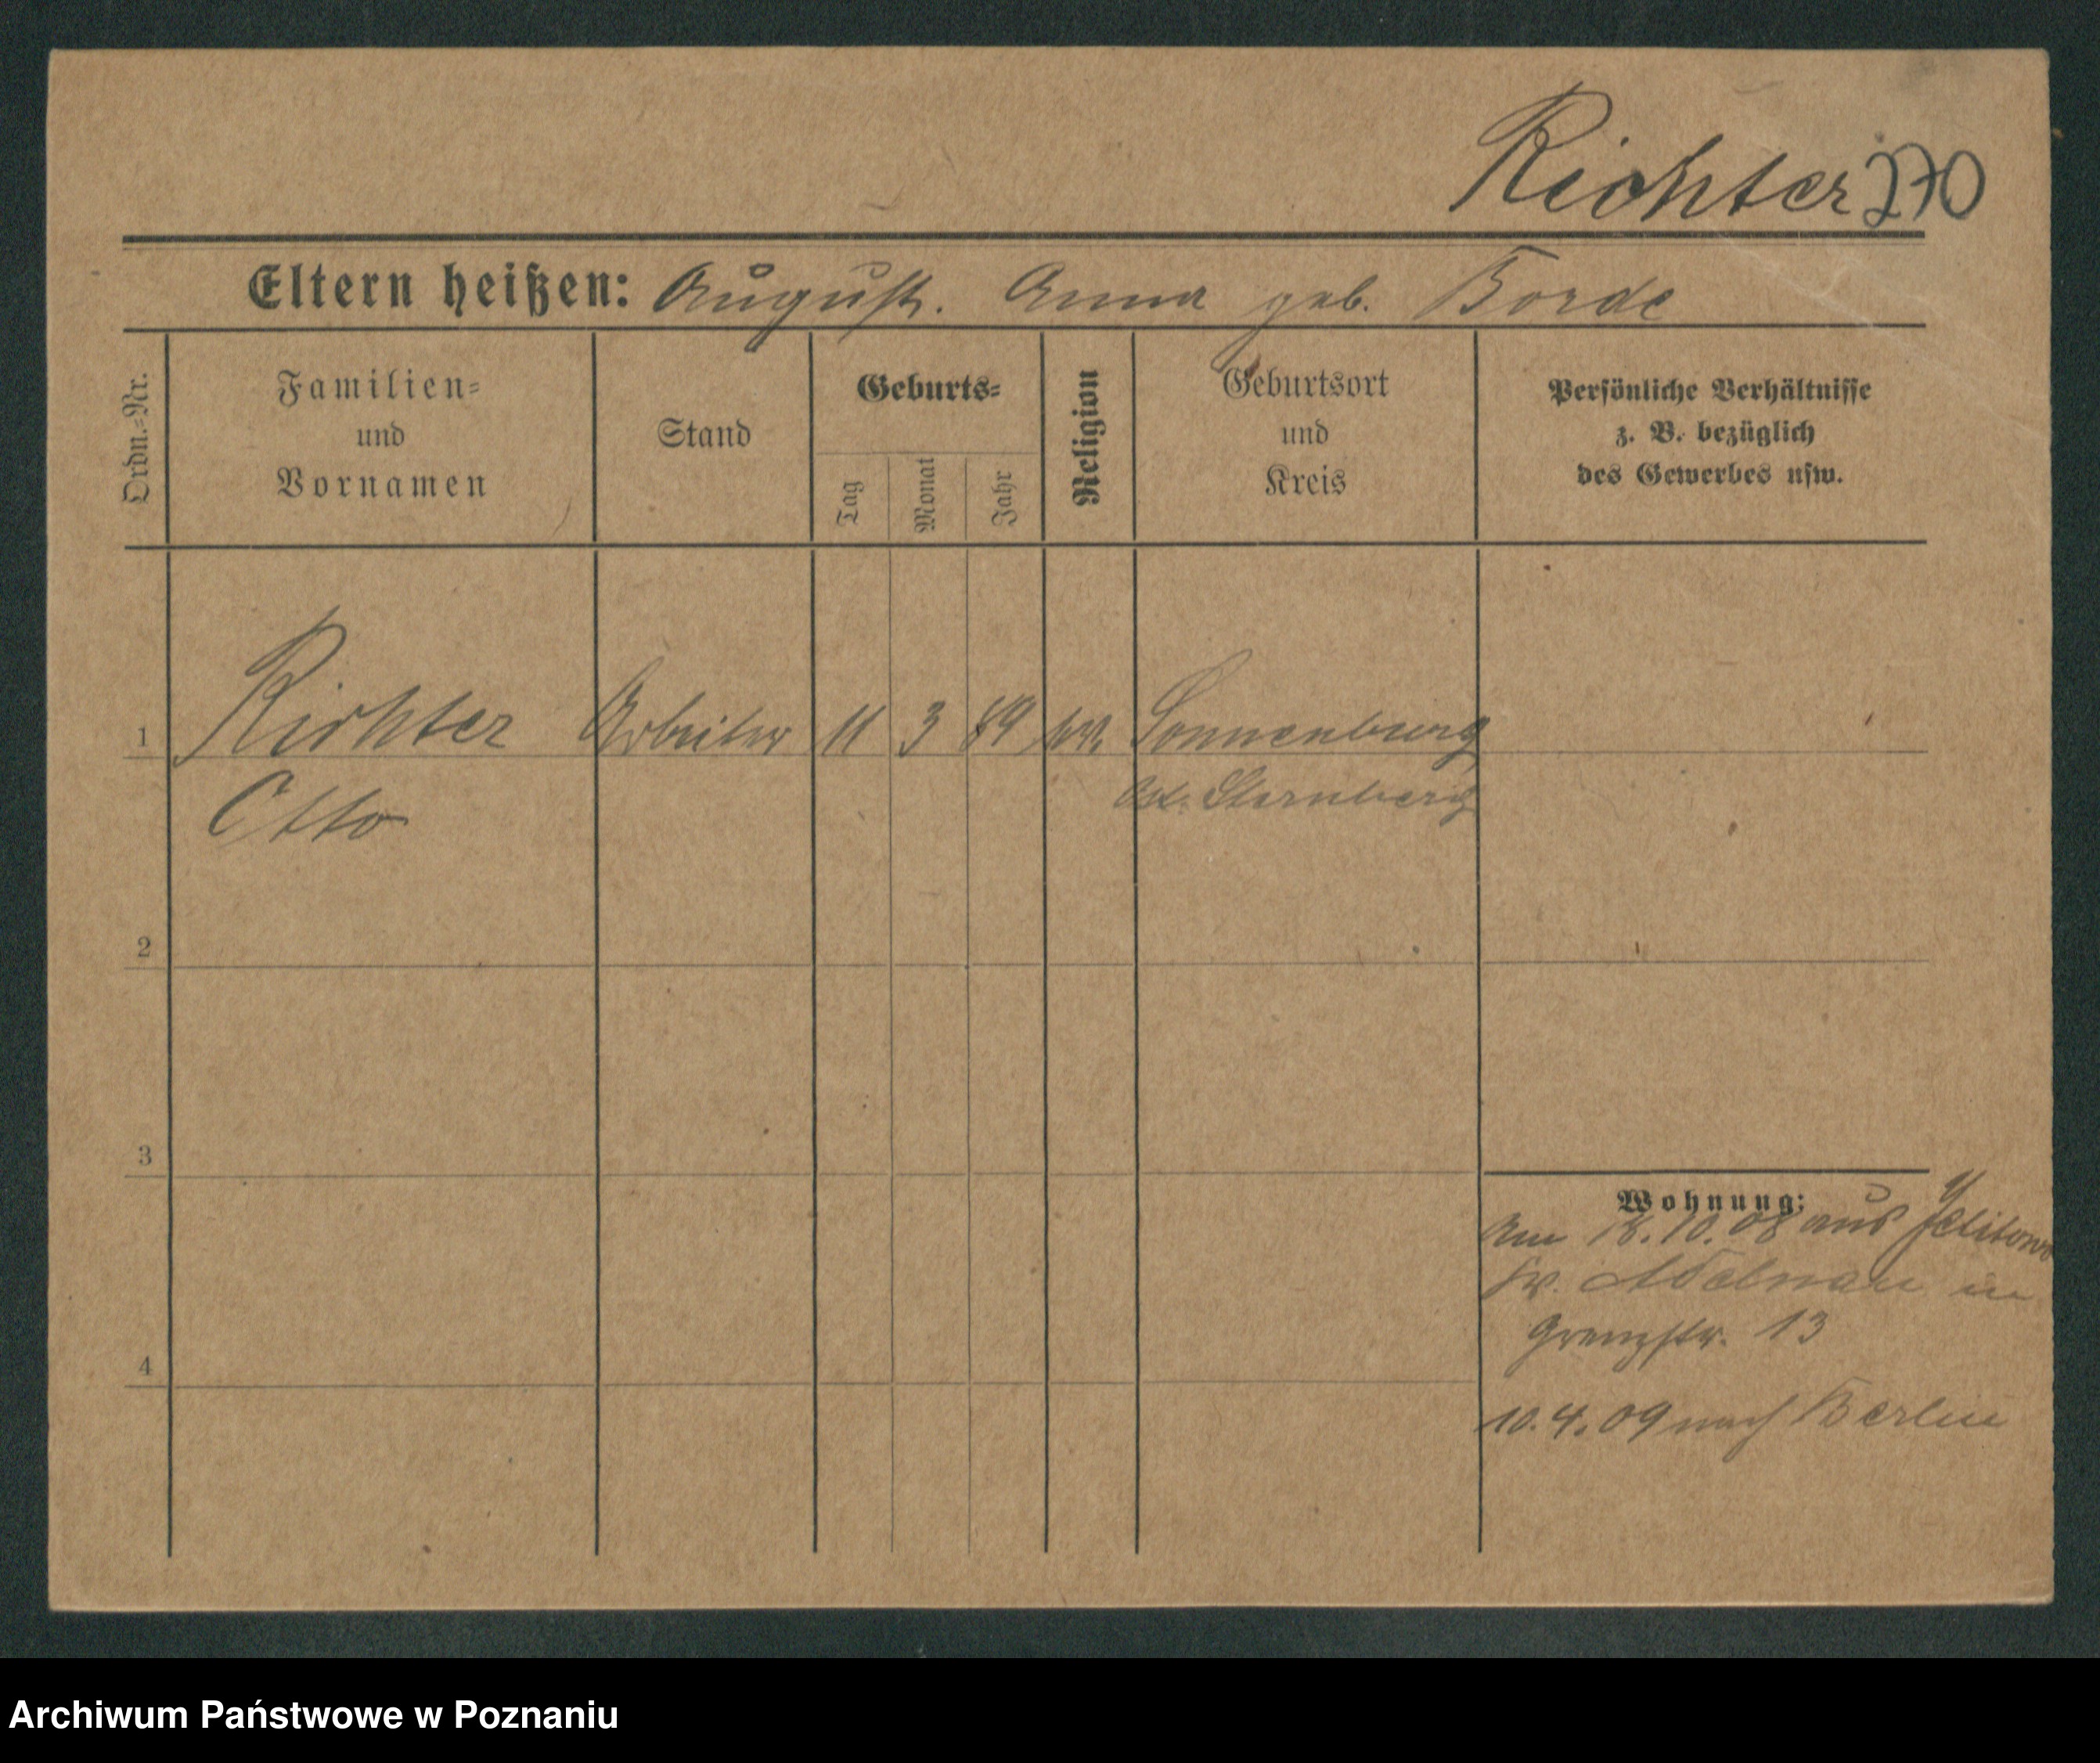 Richter 270
Eltern heißen: August. Anna geb. Borde
Ordn.=Nr.
Familien=
und
Vornamen
Stand
Geburts=
Tag
Monat
Jahr
Religion
Geburtsort
und
Kreis
Persönliche Verhältnisse
z. B. bezüglich
des Gewerbes usw.
1 Richter Arbeiter 11 3 89 ev. Sonnenburg
Otto Ost. Sternberg
2
3
4
Wohnung:
Am 18.10.08 aus
Kr. Adelnau in
Grenzstr. 13
10.4.09 nach Berlin
Archiwum Państwowe w Poznaniu